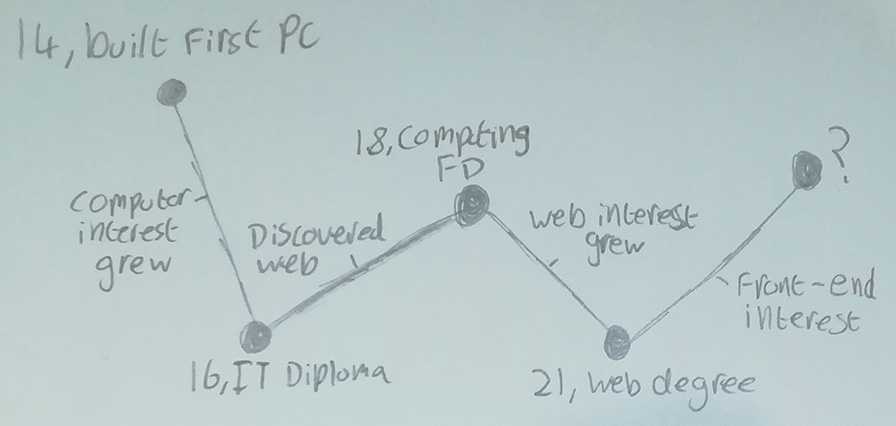 14, built First PC
computer
interest
grew
Discovered
web
16, IT Diploma
18, Computing
FD
web interest
grew
21, web degree
Front-end
interest
?